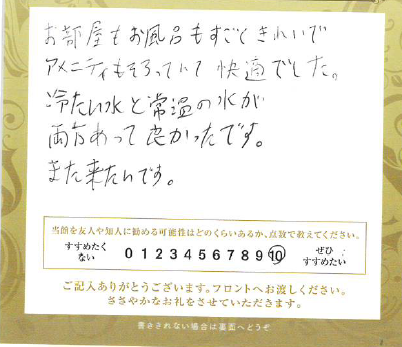 お部屋もお風呂もすごくきれいで
アメニティもそろっていて 快適でした。
冷たい水と常温の水が
両方あって良かったです。
また来たいです。
当館を友人や知人に勧める可能性はどのくらいあるか、点数で教えてください。
すすめたくない 0 1 2 3 4 5 6 7 8 9 10 ぜひすすめたい
ご記入ありがとうございます。フロントへお渡しください。
ささやかなお礼をさせていただきます。
書ききれない場合は裏面へどうぞ